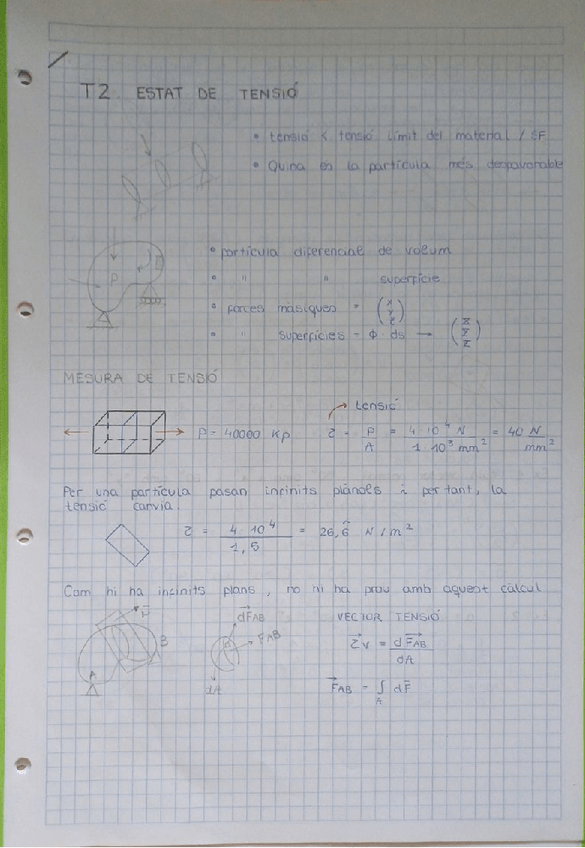 T2 ESTAT DE TENSIÓ
• tensió < tensió límit del material / SF
• Quina es la partícula més desfavorable
P
• partícula diferencial de volum
• " " superfície
• forces màsiques = (X Y Z)
• " superfícies - ϕ · ds → (X̄ Ȳ Z̄)
MESURA DE TENSIÓ
tensió
P = 40000 Kp
τ = P / A = 4 · 10⁴ N / 1 · 10³ mm² = 40 N / mm²
Per una partícula pasan infinits planols i per tant, la
tensió canvia.
τ = 4 · 10⁴ / 1,5 = 26,6̂ N / m²
Com hi ha infinits plans, no hi ha prou amb aquest càlcul
A B N
dFAB FAB dA
VECTOR TENSIÓ
τv = dFAB / dA
FAB = ∫A dF